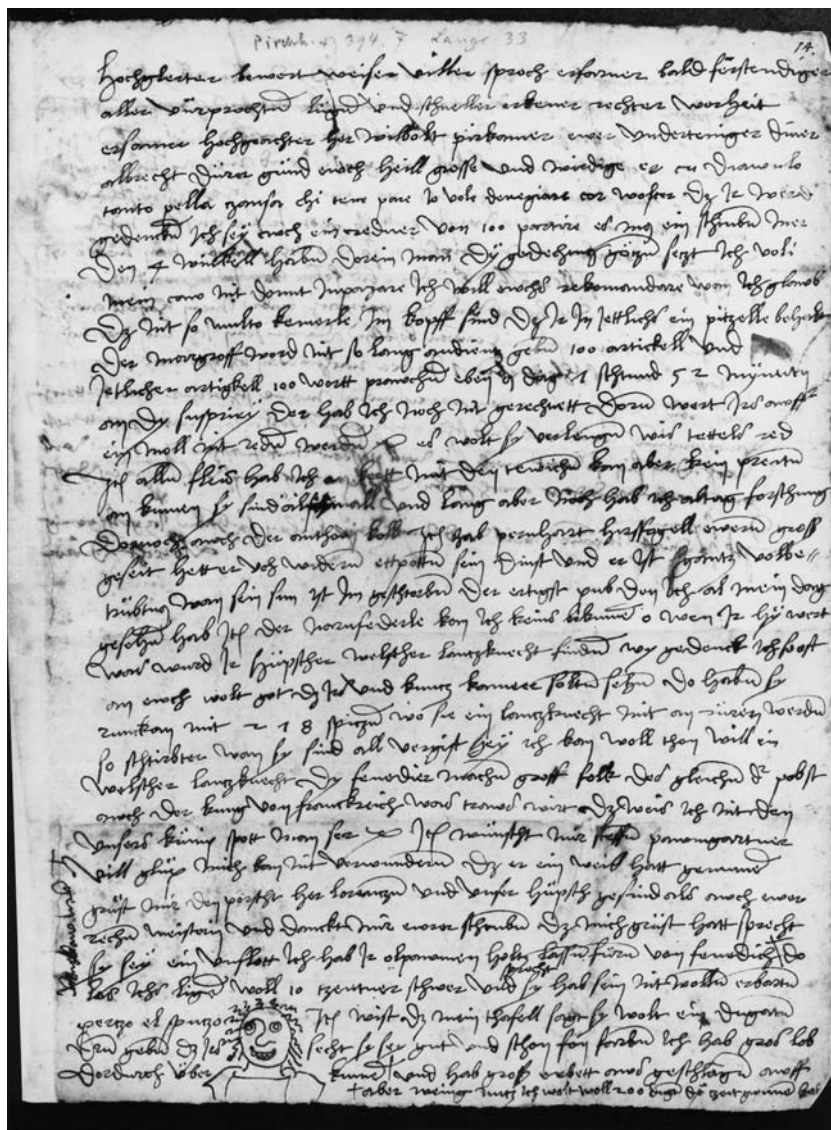 Pirckh. 394. 7 Lange 33
14.
Hochgelerter bewert weiser viller sproch erfarner bald ferstendiger
aller vürprochtn lügen vnd schneller erkener rechter worheit
ersamer hochgeachter her wilbolt pirkamer ewer vnderteniger diner
albrecht Dürer günd ewch heill grosse vnd wirdige er cu diawulo
tanto pella tzansa chi tene pare Io vole denegiare cor woster Dz Ir werd
gedencken Ich sey awch ein redner von 100 partire es mus ein schtuben mer
Den 4 winckell haben Dorein man Dy gedechnus götzn setzt Ich voli
mein caw nit domit Inpazare Ich will ewchs rekomandare wan Ich glawb
Dz nit so multo kemerle Im kopff sind Dz Ir In Jettlichs ein pitzelle behalten
Der margroff word nit so lang audientz geben 100 artickell vnd
Jetlicher artigkell 100 wortt prawchen eben 9 dag 7 schtund 52 mynuten
an Dy suspirij Der hab Ich noch nit gerechnett Dorum wert Irs awff
ein moll nit reden werden es wolt sy verlengen wis tettels red
Item allen fleis hab Ich an kertt mit den tewichen kan aber kein preiten
an kumen sy sind al schmall vnd lang aber noch hab Ich altag forschung
Dornoch awch Der anthoni kolb Ich hab pernhart hirsfogell ewern grus
geseit hett er wch widerum ettpotten sein dinst vnd er Ist gantz vol be=
trübtnus wan sein sun ist Im geschtorben Der ertigst pub Den Ich al mein dag
gesehen hab Item Der narnfederle kan Ich keins bekumen o wen Ir hy wert
was wurd Ir hüpscher welscher lantzknecht finden wy gedenck Ich so oft
an ewch wolt got Dz Irs vnd kuntz kamerer solten sehen Do haben sy
runckan mit 218 spitzen wo sie ein lantzknecht mit an rüren werden
so schtirbter wan sy sind all vergift hey Ich kan woll thon will ein
welscher lantzknecht Dy fenedier machen gros folk Des gleichen Der pobst
awch Der kung von franckreich was traws wirt Dz weis Ich nit Den
vnsers künix spott man ser Item wünscht mir steffen pawmgartner
vill glüx mich kan nit verwundern Dz er ein weib hatt genumen
grüst mir Den porscht her lorentzen vnd vnser hüpsch gesind als awch ewer
rechen meisterin vnd danckt mir ewrer schtuben Dz mich grüst hatt sprecht
sy sey ein vnflott Ich hab Ir olpawmen holtz lassen füren von fenedich Do
los Ichs ligen woll 10 tzentner schwer vnd sprecht sy hab sein nit wollen erbarten
pertzo el sputzo Item wist Dz mein thafell sagt sy wolt ein Dugaten
Drum geben Dz Irs secht sy sey gut vnd schon fon farben Ich hab gros lob
Dordurch über kumen vnd hab gros erbett aws geschlagen awff
aber wenig nutz Ich wolt woll 200 dugaten Der tzeit gwunen haben